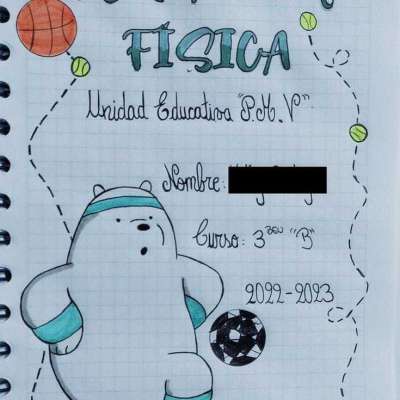 FÍSICA
Unidad Educativa "P.M.V"
Nombre:
Curso: 3ero "B"
2022-2023